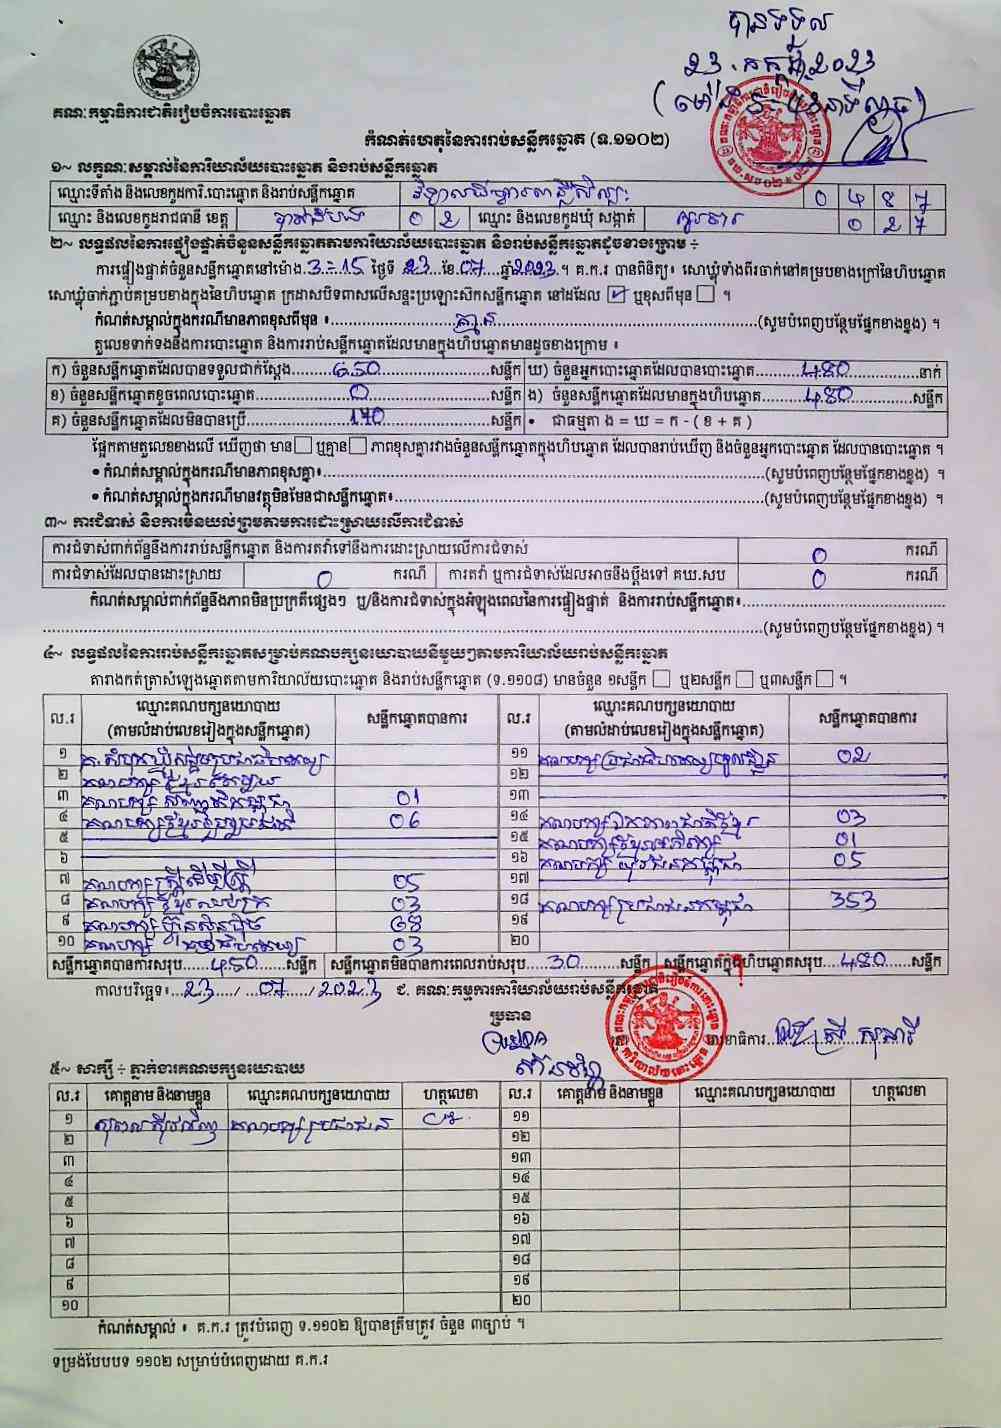 បានទទួល
23. កក្កដា 2023
គណៈកម្មាធិការជាតិរៀបចំការបោះឆ្នោត
កំណត់ហេតុនៃការរាប់សន្លឹកឆ្នោត (ទ.១១០២)
១~ លក្ខណៈសម្គាល់នៃការិយាល័យបោះឆ្នោត និងរាប់សន្លឹកឆ្នោត
ឈ្មោះទីតាំង និងលេខកូដការិ.បោះឆ្នោត និងរាប់សន្លឹកឆ្នោត 0 4 8 7
ឈ្មោះ និងលេខកូដរាជធានី ខេត្ត បាត់ដំបង 0 2 ឈ្មោះ និងលេខកូដឃុំ សង្កាត់ 0 2 7
២~ លទ្ធផលនៃការផ្ទៀងផ្ទាត់ចំនួនសន្លឹកឆ្នោតតាមការិយាល័យបោះឆ្នោត និងរាប់សន្លឹកឆ្នោតដូចខាងក្រោម ÷
ការផ្ទៀងផ្ទាត់ចំនួនសន្លឹកឆ្នោតនៅម៉ោង 3-15 ថ្ងៃទី 23 ខែ 07 ឆ្នាំ 2023 ។ គ.ក.រ បានពិនិត្យ៖ សោឃ្លុំទាំងពីរចាក់នៅគម្របខាងក្រៅនៃហិបឆ្នោត
សោឃ្លុំចាក់ភ្ជាប់គម្របខាងក្នុងនៃហិបឆ្នោត ក្រដាសបិទពាសលើសន្ទះប្រឡោះសិកសន្លឹកឆ្នោត នៅដដែល ☑ ឬខុសពីមុន ☐ ។
កំណត់សម្គាល់ក្នុងករណីមានភាពខុសពីមុន ៖ គ្មាន (សូមបំពេញបន្ថែមផ្នែកខាងខ្នង) ។
តួលេខទាក់ទងនឹងការបោះឆ្នោត និងការរាប់សន្លឹកឆ្នោតដែលមានក្នុងហិបឆ្នោតមានដូចខាងក្រោម ៖
ក) ចំនួនសន្លឹកឆ្នោតដែលបានទទួលជាក់ស្តែង 650 សន្លឹក ឃ) ចំនួនអ្នកបោះឆ្នោតដែលបានបោះឆ្នោត 480 នាក់
ខ) ចំនួនសន្លឹកឆ្នោតខូចពេលបោះឆ្នោត 0 សន្លឹក ង) ចំនួនសន្លឹកឆ្នោតដែលមានក្នុងហិបឆ្នោត 480 សន្លឹក
គ) ចំនួនសន្លឹកឆ្នោតដែលមិនបានប្រើ 170 សន្លឹក • ជាធម្មតា ង = ឃ = ក - ( ខ + គ )
ផ្អែកតាមតួលេខខាងលើ ឃើញថា មាន ☐ ឬគ្មាន ☐ ភាពខុសគ្នារវាងចំនួនសន្លឹកឆ្នោតក្នុងហិបឆ្នោត ដែលបានរាប់ឃើញ និងចំនួនអ្នកបោះឆ្នោត ដែលបានបោះឆ្នោត ។
• កំណត់សម្គាល់ក្នុងករណីមានភាពខុសគ្នា៖ (សូមបំពេញបន្ថែមផ្នែកខាងខ្នង) ។
• កំណត់សម្គាល់ក្នុងករណីមានវត្ថុមិនមែនជាសន្លឹកឆ្នោត៖ (សូមបំពេញបន្ថែមផ្នែកខាងខ្នង) ។
៣~ ការជំទាស់ និងការមិនយល់ព្រមតាមការដោះស្រាយលើការជំទាស់
ការជំទាស់ពាក់ព័ន្ធនឹងការរាប់សន្លឹកឆ្នោត និងការតវ៉ាទៅនឹងការដោះស្រាយលើការជំទាស់ 0 ករណី
ការជំទាស់ដែលបានដោះស្រាយ 0 ករណី ការតវ៉ា ឬការជំទាស់ដែលអាចនឹងប្តឹងទៅ គឃ.សប 0 ករណី
កំណត់សម្គាល់ពាក់ព័ន្ធនឹងភាពមិនប្រក្រតីផ្សេងៗ ឬ/និងការជំទាស់ក្នុងអំឡុងពេលនៃការផ្ទៀងផ្ទាត់ និងការរាប់សន្លឹកឆ្នោត៖
(សូមបំពេញបន្ថែមផ្នែកខាងខ្នង) ។
៤~ លទ្ធផលនៃការរាប់សន្លឹកឆ្នោតសម្រាប់គណបក្សនយោបាយនីមួយៗតាមការិយាល័យរាប់សន្លឹកឆ្នោត
តារាងកត់ត្រាសំឡេងឆ្នោតតាមការិយាល័យបោះឆ្នោត និងរាប់សន្លឹកឆ្នោត (ទ.១១០៨) មានចំនួន ១សន្លឹក ☐ ឬ២សន្លឹក ☐ ឬ៣សន្លឹក ☐ ។
ល.រ ឈ្មោះគណបក្សនយោបាយ (តាមលំដាប់លេខរៀងក្នុងសន្លឹកឆ្នោត) សន្លឹកឆ្នោតបានការ ល.រ ឈ្មោះគណបក្សនយោបាយ (តាមលំដាប់លេខរៀងក្នុងសន្លឹកឆ្នោត) សន្លឹកឆ្នោតបានការ
១ ១១ 02
២ ១២
៣ 01 ១៣
៤ គណបក្សខ្មែររួបរួមជាតិ 06 ១៤ គណបក្សឯកភាពជាតិខ្មែរ 03
៥ ១៥ គណបក្សខ្មែរអភិរក្ស 01
៦ ១៦ គណបក្ស យុវជនកម្ពុជា 05
៧ គណបក្សស្ត្រីដើម្បីស្ត្រី 05 ១៧
៨ គណបក្ស ខ្មែរឈប់ក្រ 03 ១៨ គណបក្សប្រជាជនកម្ពុជា 353
៩ គណបក្ស ហ្វ៊ុនស៊ិនប៉ិច 68 ១៩
១០ 03 ២០
សន្លឹកឆ្នោតបានការសរុប 450 សន្លឹក សន្លឹកឆ្នោតមិនបានការពេលរាប់សរុប 30 សន្លឹក សន្លឹកឆ្នោតក្នុងហិបឆ្នោតសរុប 480 សន្លឹក
កាលបរិច្ឆេទ៖ 23 / 07 / 2023 ជ. គណៈកម្មការការិយាល័យរាប់សន្លឹកឆ្នោត
ប្រធាន
លេខាធិការ
៥~ សាក្សី ÷ ភ្នាក់ងារគណបក្សនយោបាយ
ល.រ គោត្តនាម និងនាមខ្លួន ឈ្មោះគណបក្សនយោបាយ ហត្ថលេខា ល.រ គោត្តនាម និងនាមខ្លួន ឈ្មោះគណបក្សនយោបាយ ហត្ថលេខា
១ គណបក្សប្រជាជន ១១
២ ១២
៣ ១៣
៤ ១៤
៥ ១៥
៦ ១៦
៧ ១៧
៨ ១៨
៩ ១៩
១០ ២០
កំណត់សម្គាល់ ៖ គ.ក.រ ត្រូវបំពេញ ទ.១១០២ ឱ្យបានត្រឹមត្រូវ ចំនួន ៣ច្បាប់ ។
ទម្រង់បែបបទ ១១០២ សម្រាប់បំពេញដោយ គ.ក.រ